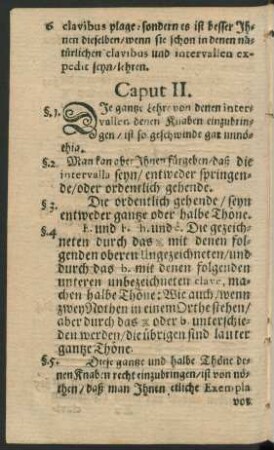 6 clavibus plage / sondern es ist besser Ih-
nen dieselben / wenn sie schon in denen na-
türlichen clavibus und intervallen ex-
pedit seyn / lehren.
Caput II.
§. 1. DIe gantze Lehre von denen inter-
vallen denen Knaben einzubrin-
gen / ist so geschwinde gar unnö-
thig.
§. 2. Man kan aber Ihnen fürgeben / daß die
intervalla seyn / entweder springen-
de / oder ordentlich gehende.
§ 3. Die ordentlich gehende / seyn
entweder gantze oder halbe Thone.
§. 4 E. und F. h. und c. Die gezeich-
neten durch das x mit denen fol-
genden oberen Ungezeichneten / und
durch das b. mit denen folgenden
unteren unbezeichneten clave, ma-
chen halbe Thöne: Wie auch / wenn
zwey Nothen in einem Orthe stehen /
aber durch das x oder b. unterschie-
den werden / die übrigen sind lauter
gantze Thöne.
§. 5. Diese gantze und halbe Thöne de-
nen Knaben recht einzubringen / ist von nö-
then / daß man Ihnen etliche Exempla
vor